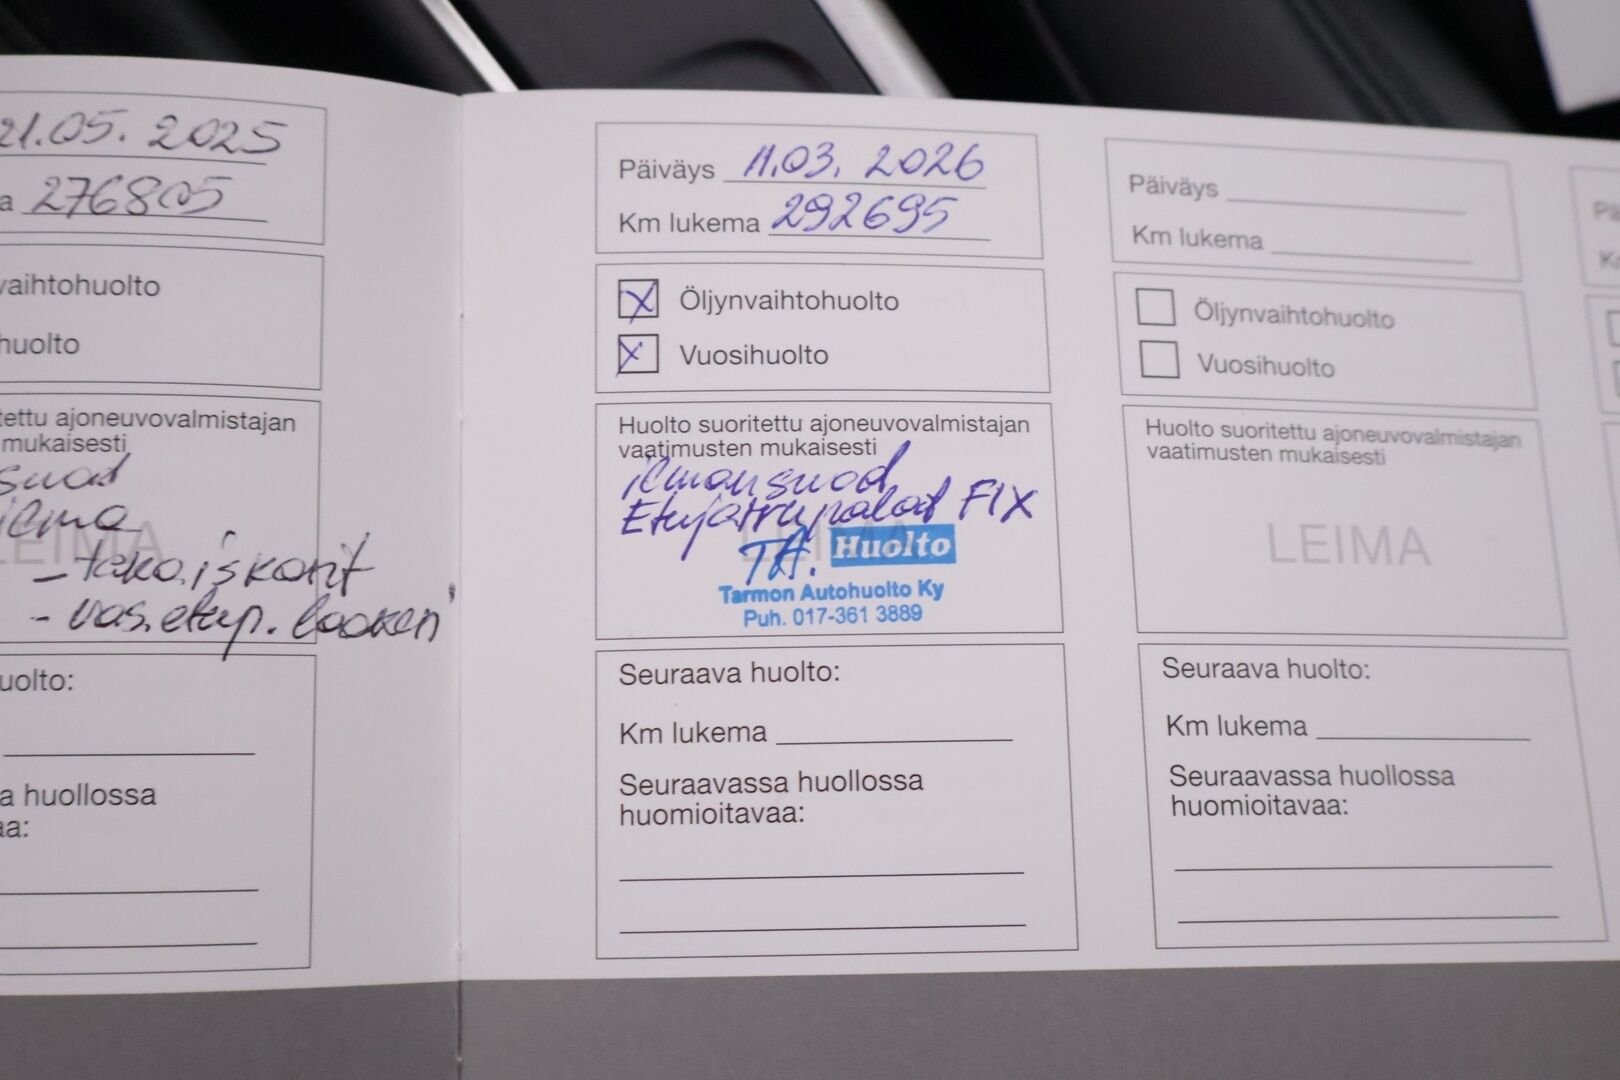 21.05.2025
a 276805
vaihtohuolto
huolto
tettu ajoneuvovalmistajan
mukaisesti
suod
ilma
LEIMA
- taka.iskarit
- vas.etup.
uolto:
a huollossa
aa:
Päiväys 11.03.2026
Km lukema 292695
X Öljynvaihtohuolto
X Vuosihuolto
Huolto suoritettu ajoneuvovalmistajan
vaatimusten mukaisesti
ilmansuod
Etujarrupalat FIX
LEIMA
T.A. Huolto
Tarmon Autohuolto Ky
Puh. 017-361 3889
Seuraava huolto:
Km lukema
Seuraavassa huollossa
huomioitavaa:
Päiväys
Km lukema
Öljynvaihtohuolto
Vuosihuolto
Huolto suoritettu ajoneuvovalmistajan
vaatimusten mukaisesti
LEIMA
Seuraava huolto:
Km lukema
Seuraavassa huollossa
huomioitavaa: